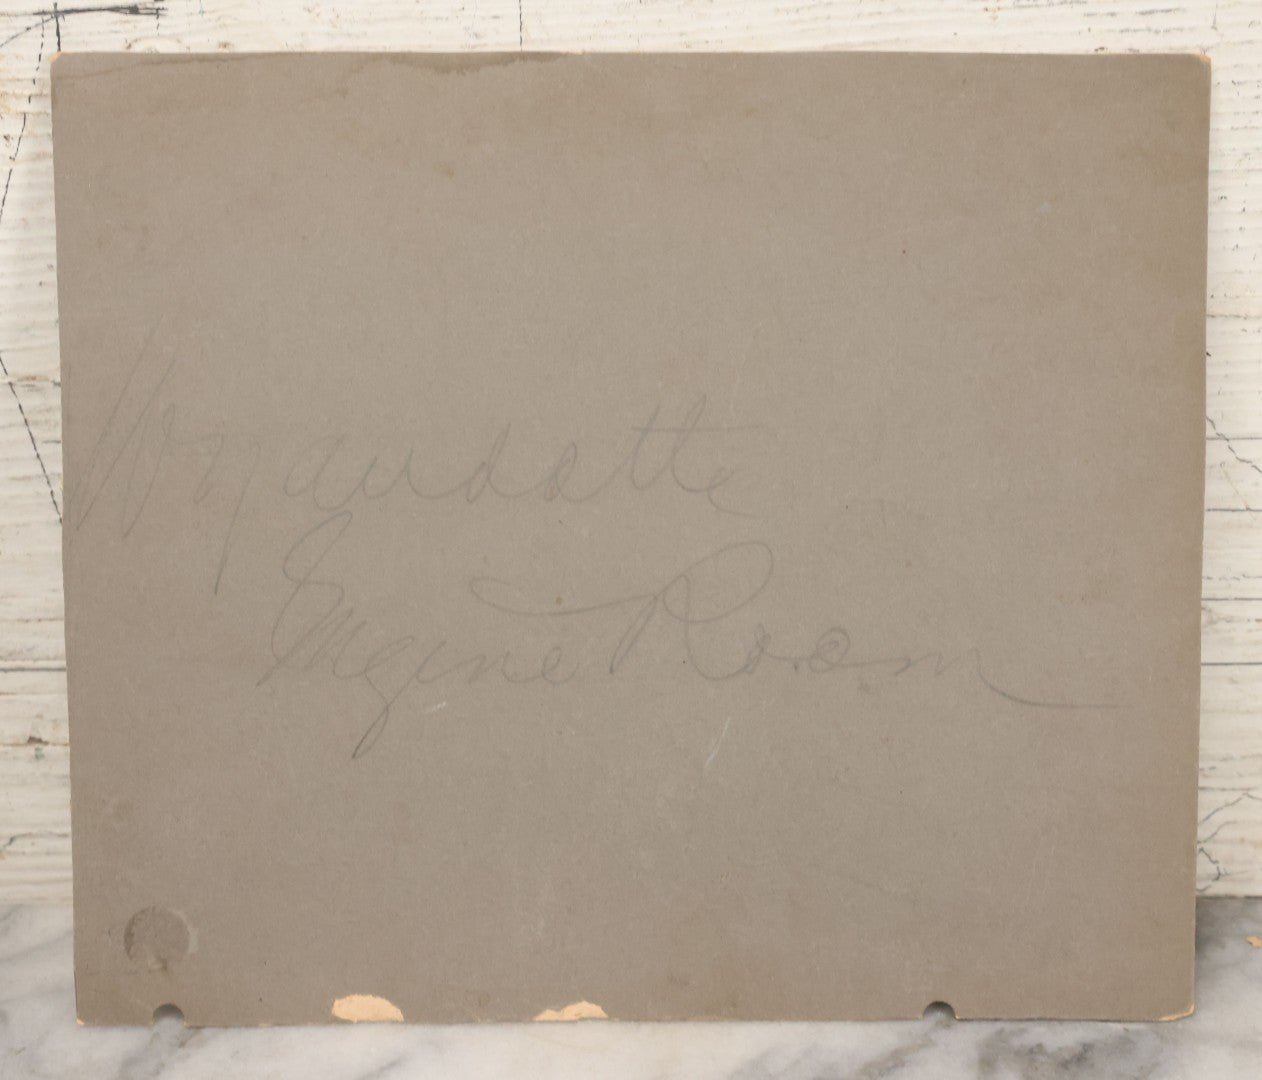 Wyandotte
Engine Room